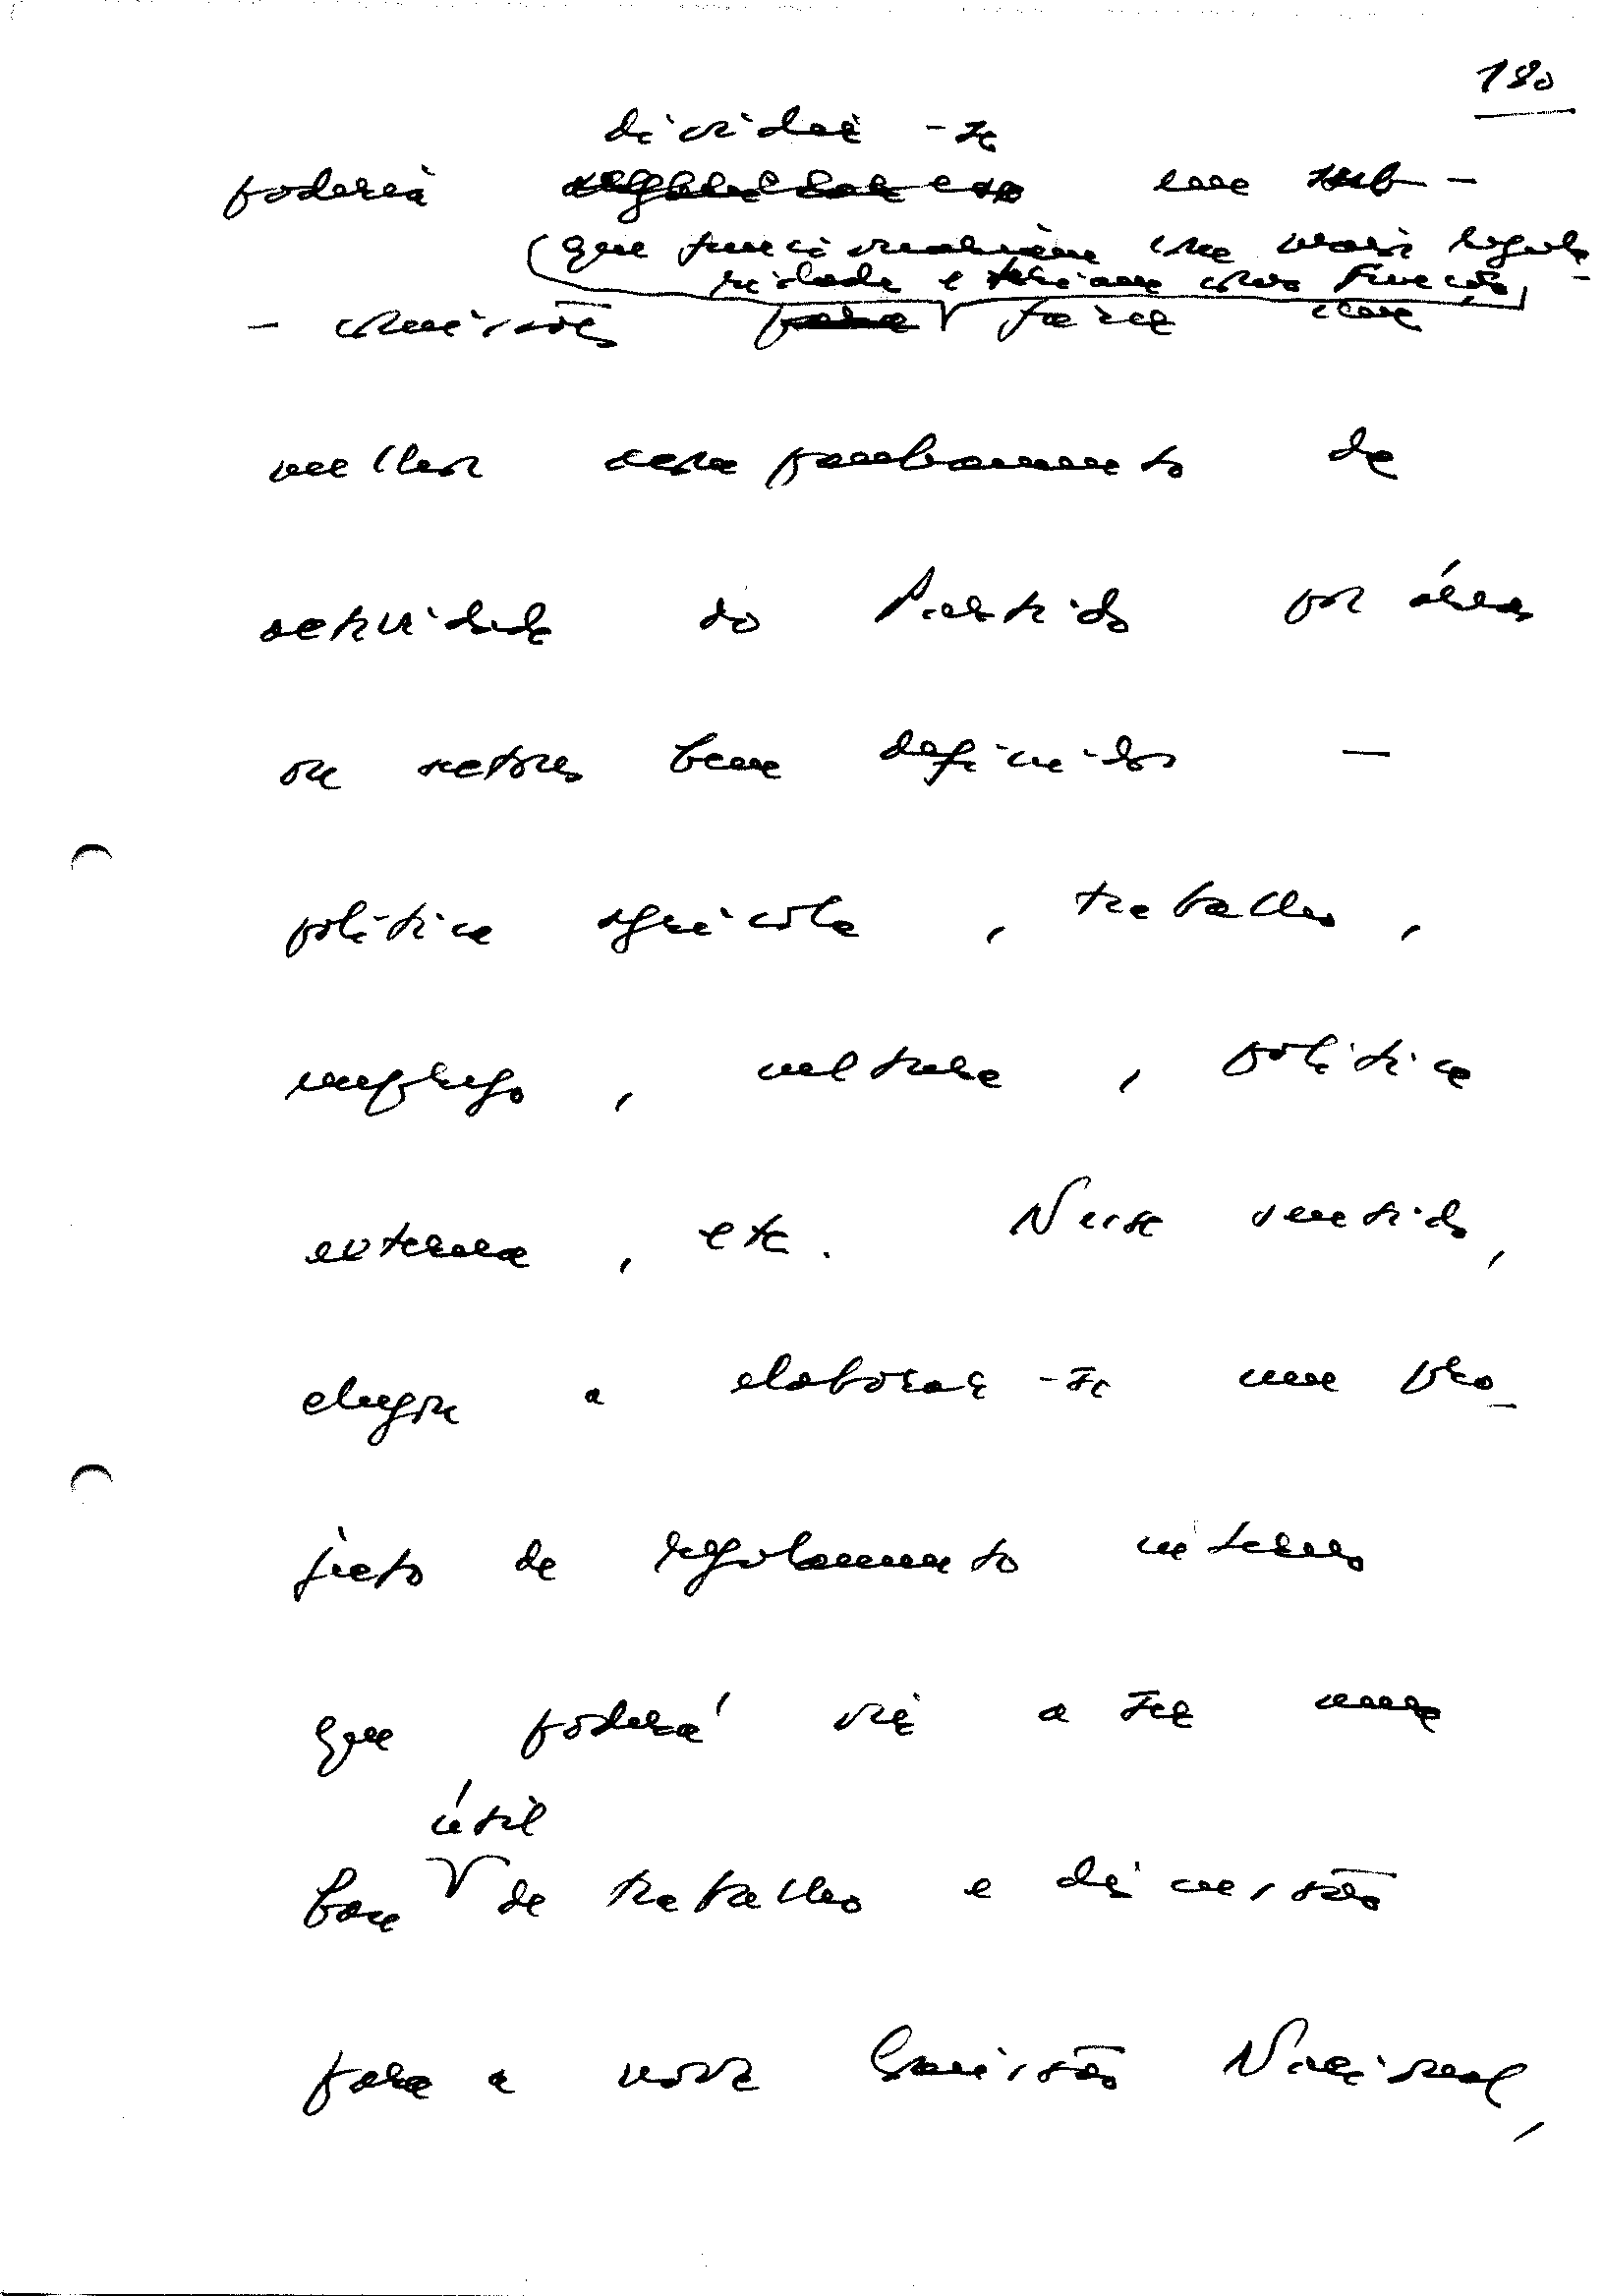 180
dividir-se
poderia em sub-
(que funcionariam com mais regula-
ridade e teriam como função)
-comissões para fazer um
melhor acompanhamento da
actividade do Partido por áreas
ou sectores bem definidos —
política agrícola, trabalho,
emprego, cultura, política
externa, etc. Nesse sentido,
chegou a elaborar-se um pro-
jecto de regulamento interno
que poderá vir a ser uma
útil
base de trabalho e discussão
para a nova Comissão Nacional,